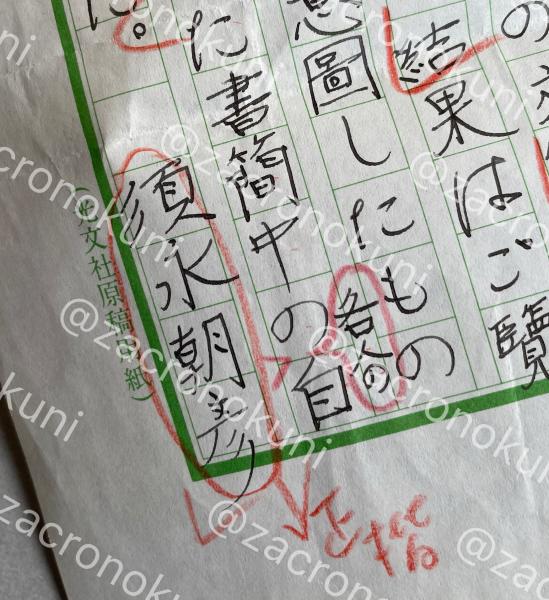 の
結果はご覧
意圖したもの
各
に書簡中の自
た。
須永朝彦
文社原稿用紙)
@zacronokuni